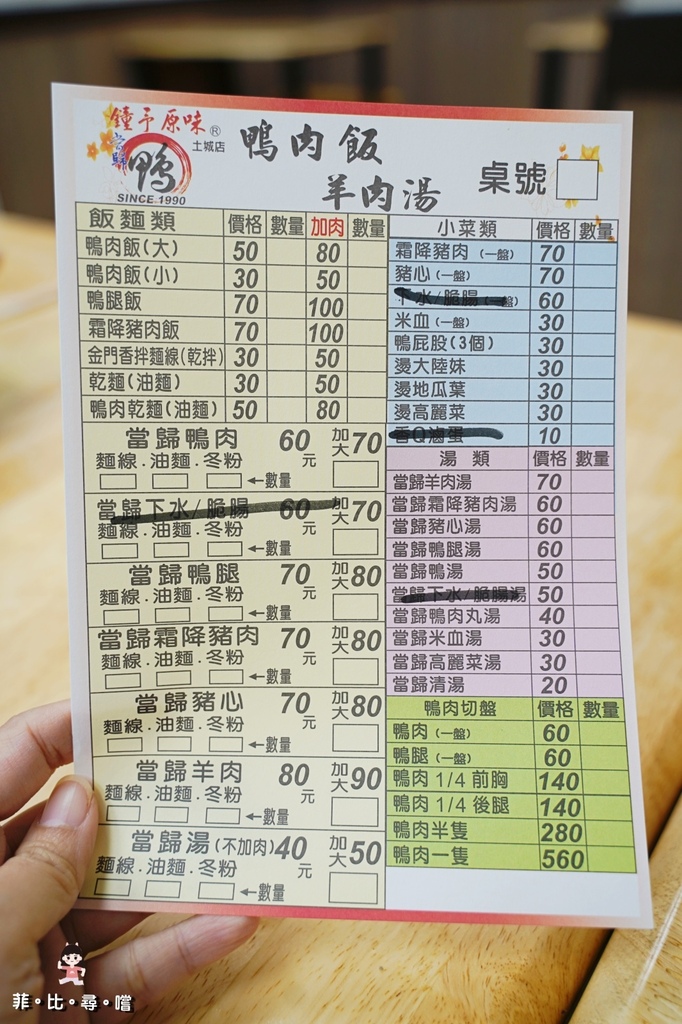 鐘予原味®
當歸 鴨 土城店
SINCE.1990
鴨肉飯
羊肉湯
桌號
飯麵類 價格 數量 加肉 數量
鴨肉飯(大) 50 80
鴨肉飯(小) 30 50
鴨腿飯 70 100
霜降豬肉飯 70 100
金門香拌麵線(乾拌) 30 50
乾麵(油麵) 30 50
鴨肉乾麵(油麵) 50 80
當歸鴨肉 60元 加大70
麵線.油麵.冬粉
←數量
當歸下水/脆腸 60元 加大70
麵線.油麵.冬粉
←數量
當歸鴨腿 70元 加大80
麵線.油麵.冬粉
←數量
當歸霜降豬肉 70元 加大80
麵線.油麵.冬粉
←數量
當歸豬心 70元 加大80
麵線.油麵.冬粉
←數量
當歸羊肉 80元 加大90
麵線.油麵.冬粉
←數量
當歸湯(不加肉)40元 加大50
麵線.油麵.冬粉
←數量
小菜類 價格 數量
霜降豬肉(一盤) 70
豬心(一盤) 70
下水/脆腸(一盤) 60
米血(一盤) 30
鴨屁股(3個) 30
燙大陸妹 30
燙地瓜葉 30
燙高麗菜 30
香Q滷蛋 10
湯類 價格 數量
當歸羊肉湯 70
當歸霜降豬肉湯 60
當歸豬心湯 60
當歸鴨腿湯 60
當歸鴨湯 50
當歸下水/脆腸湯 50
當歸鴨肉丸湯 40
當歸米血湯 30
當歸高麗菜湯 30
當歸清湯 20
鴨肉切盤 價格 數量
鴨肉(一盤) 60
鴨腿(一盤) 60
鴨肉 1/4 前胸 140
鴨肉 1/4 後腿 140
鴨肉半隻 280
鴨肉一隻 560
菲。比。尋。嚐